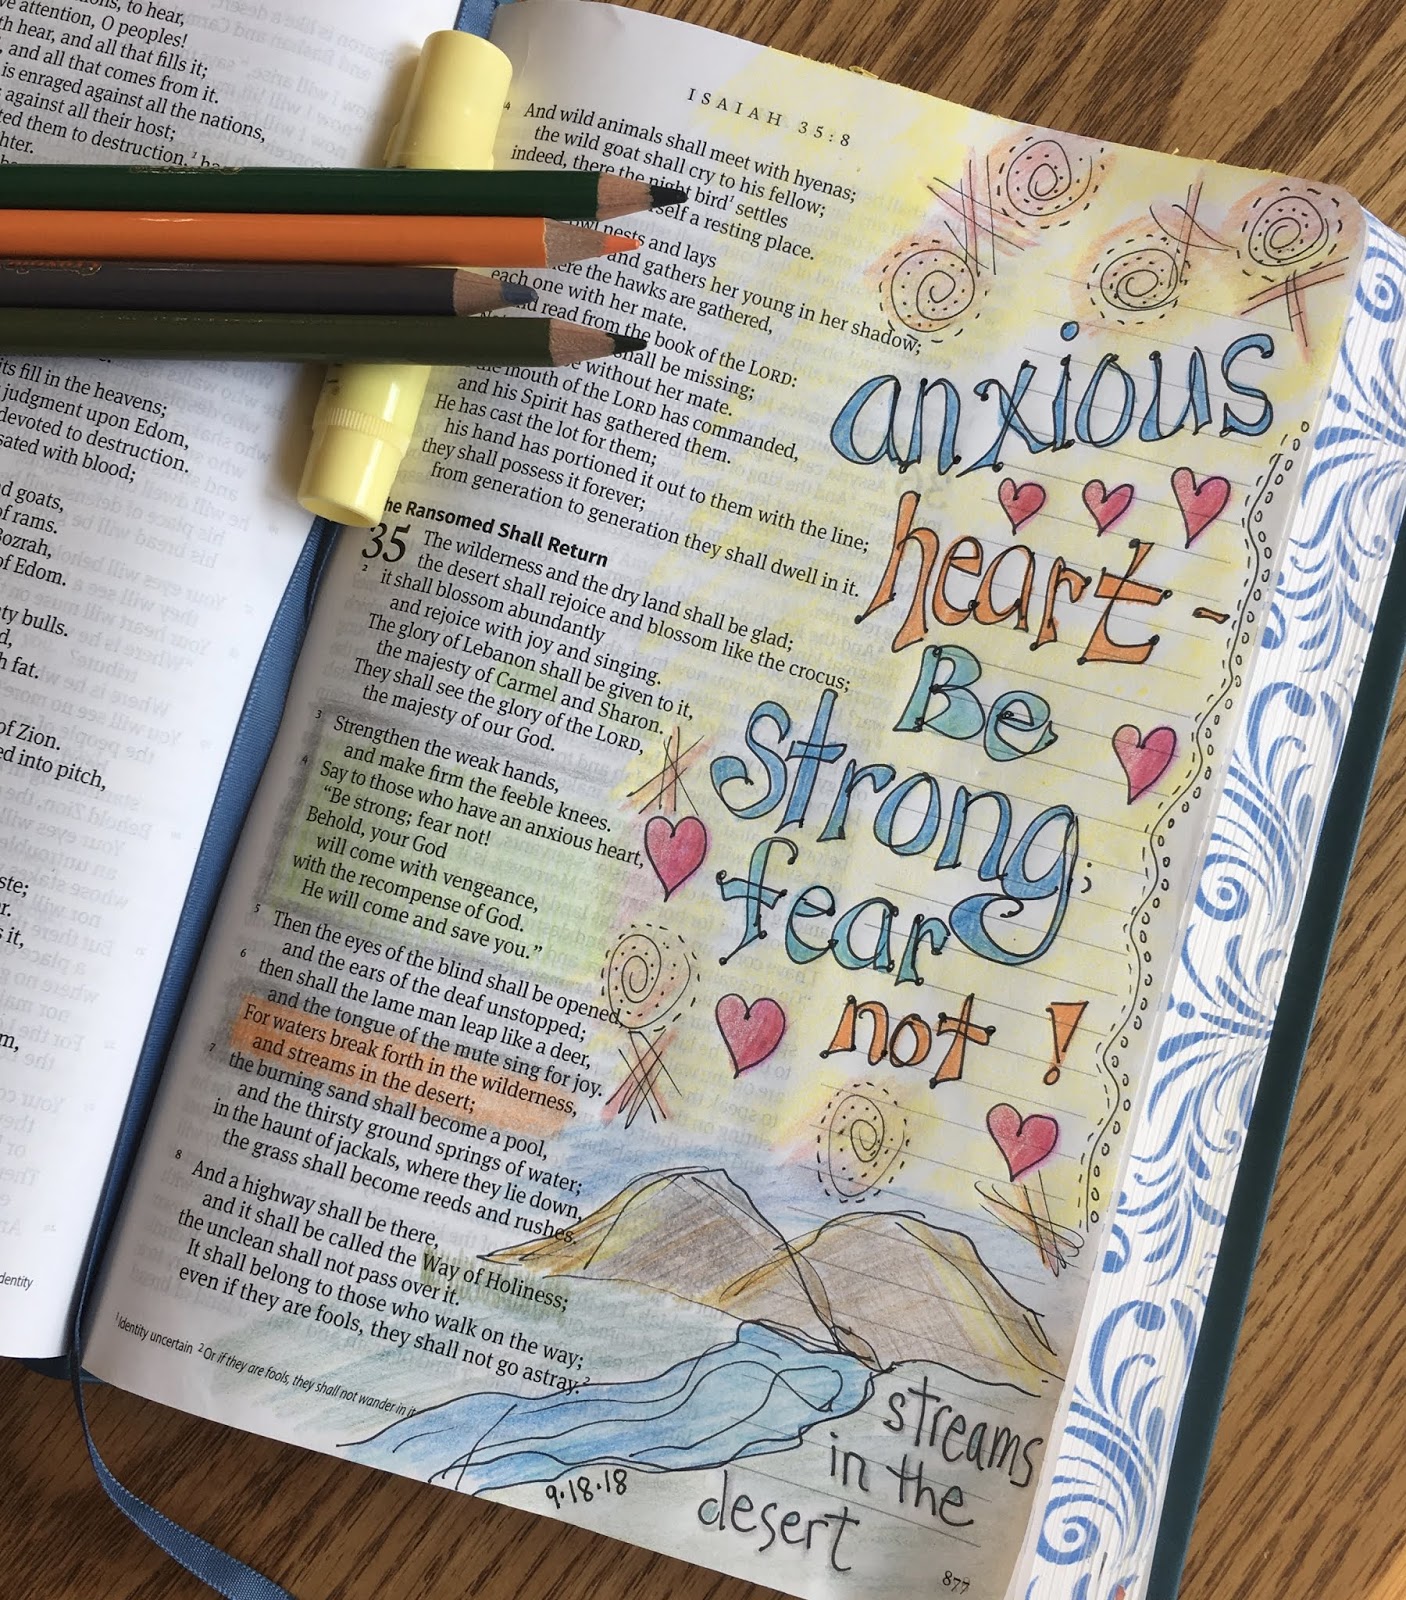 to hear,
attention, O peoples!
hear, and all that fills it;
and all that comes from it.
is enraged against all the nations,
against all their host;
them to destruction,
fill in the heavens;
judgment upon Edom,
devoted to destruction.
with blood;
goats,
of rams.
of Edom.
bulls.
fat.
of Zion.
into pitch,
it,
ISAIAH 35:8
And wild animals shall meet with hyenas;
the wild goat shall cry to his fellow;
indeed, there the night bird¹ settles
a resting place.
nests and lays
and gathers her young in her shadow;
the hawks are gathered,
each one with her mate.
read from the book of the LORD:
shall be missing;
without her mate.
mouth of the LORD has commanded,
and his Spirit has gathered them.
He has cast the lot for them;
his hand has portioned it out to them with the line;
they shall possess it forever;
from generation to generation they shall dwell in it.
The Ransomed Shall Return
35 The wilderness and the dry land shall be glad;
the desert shall rejoice and blossom like the crocus;
2 it shall blossom abundantly
and rejoice with joy and singing.
The glory of Lebanon shall be given to it,
the majesty of Carmel and Sharon.
They shall see the glory of the LORD,
the majesty of our God.
3 Strengthen the weak hands,
and make firm the feeble knees.
4 Say to those who have an anxious heart,
“Be strong; fear not!
Behold, your God
will come with vengeance,
with the recompense of God.
He will come and save you.”
5 Then the eyes of the blind shall be opened,
and the ears of the deaf unstopped;
6 then shall the lame man leap like a deer,
and the tongue of the mute sing for joy.
For waters break forth in the wilderness,
and streams in the desert;
7 the burning sand shall become a pool,
and the thirsty ground springs of water;
in the haunt of jackals, where they lie down,
the grass shall become reeds and rushes.
8 And a highway shall be there,
and it shall be called the Way of Holiness;
the unclean shall not pass over it.
It shall belong to those who walk on the way;
even if they are fools, they shall not go astray.²
¹ Identity uncertain ² Or if they are fools, they shall not wander in it
anxious
heart-
Be
strong;
fear
not!
streams
in the
desert
9.18.18
877